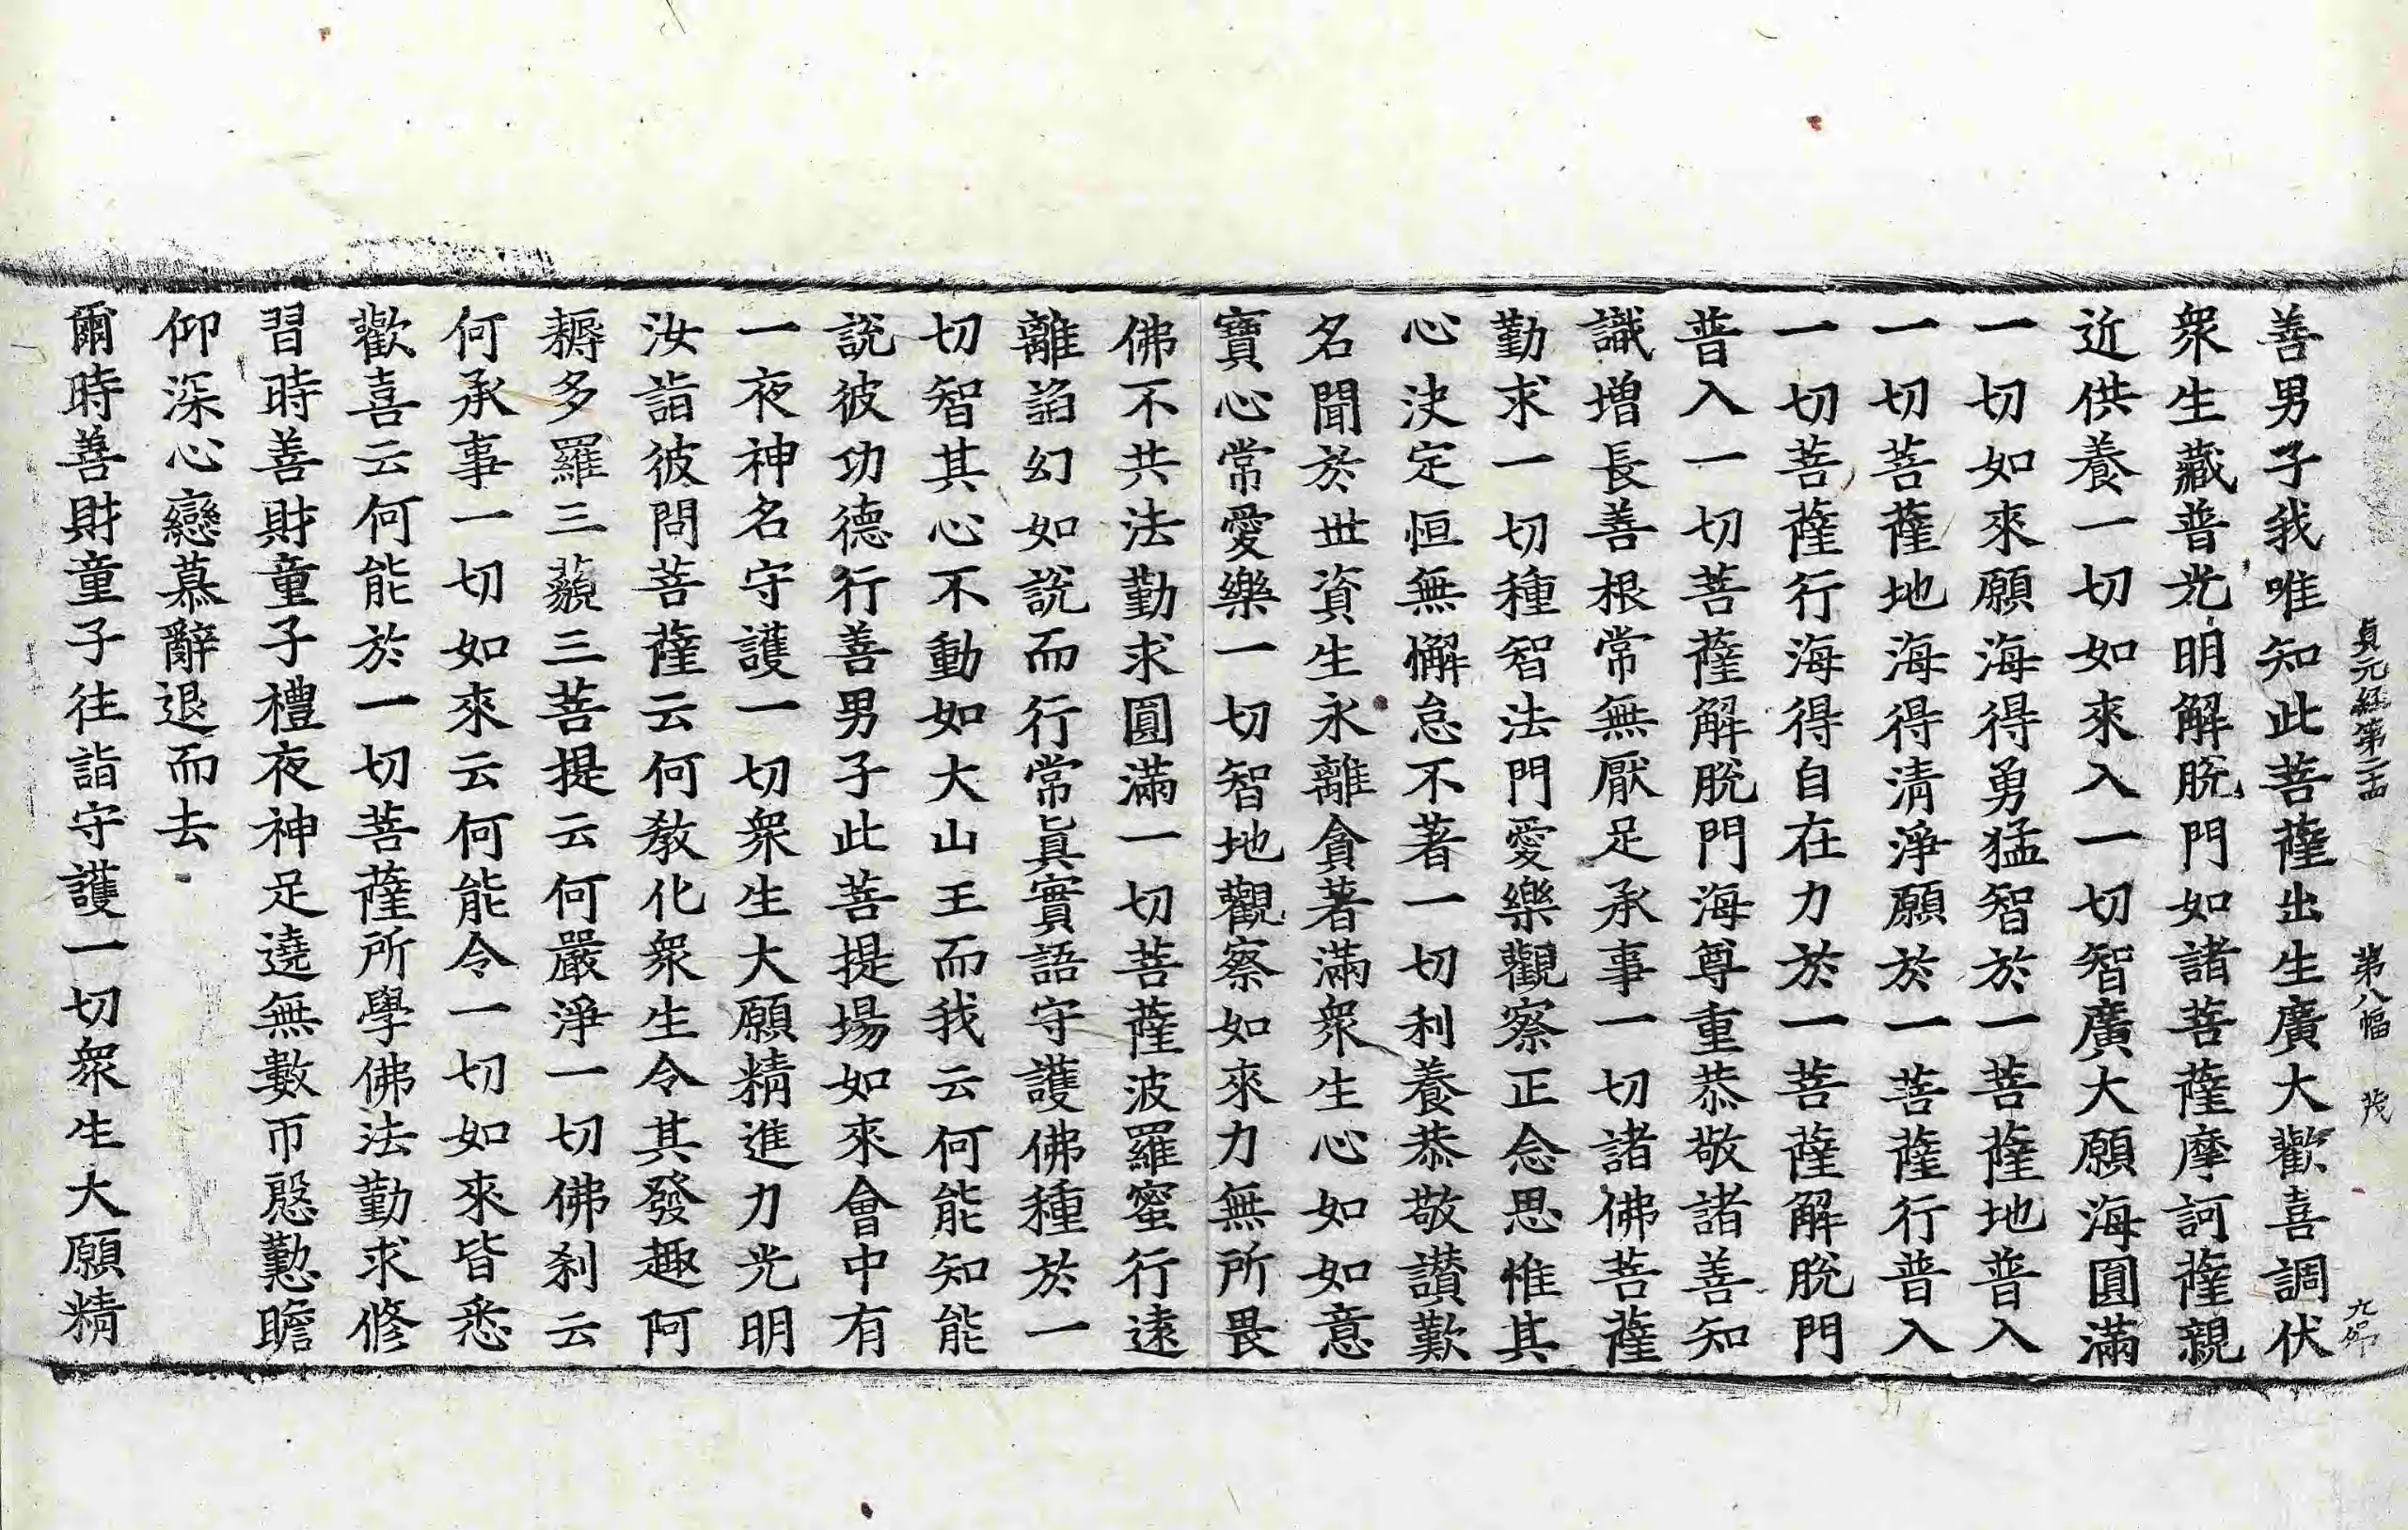 貞元経第二十四 第八幅 茂
善男子我唯知此菩薩出生廣大歡喜調伏
衆生藏普光明解脫門如諸菩薩摩訶薩親
近供養一切如來入一切智廣大願海圓滿
一切如來願海得勇猛智於一菩薩地普入
一切菩薩地海得清淨願於一菩薩行普入
一切菩薩行海得自在力於一菩薩解脫門
普入一切菩薩解脫門海尊重恭敬諸善知
識增長善根常無厭足承事一切諸佛菩薩
勤求一切種智法門愛樂觀察正念思惟其
心決定恒無懈怠不著一切利養恭敬讃歎
名聞於世資生永離貪著滿衆生心如如意
寶心常愛樂一切智地觀察如來力無所畏
佛不共法勤求圓滿一切菩薩波羅蜜行遠
離諂幻如說而行常眞實語守護佛種於一
切智其心不動如大山王而我云何能知能
說彼功德行善男子此菩提場如來會中有
一夜神名守護一切衆生大願精進力光明
汝詣彼問菩薩云何教化衆生令其發趣阿
耨多羅三藐三菩提云何嚴淨一切佛刹云
何承事一切如來云何能令一切如來皆悉
歡喜云何能於一切菩薩所學佛法勤求修
習時善財童子禮夜神足遶無數帀慇懃瞻
仰深心戀慕辭退而去
爾時善財童子往詣守護一切衆生大願精